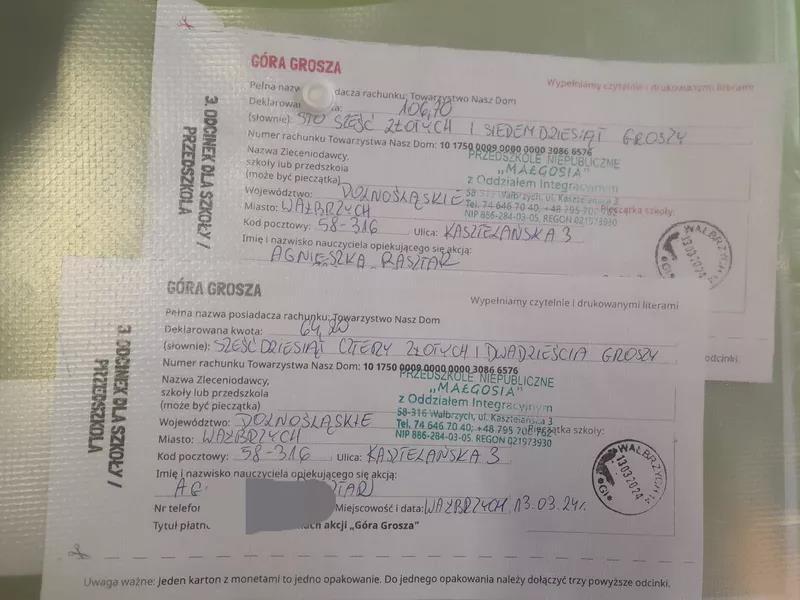 GÓRA GROSZA
Wypełniamy czytelnie i drukowanymi literami
Pełna nazw adacza rachunku: Towarzystwo Nasz Dom
Deklarowan a: 106,70
(słownie): STO SZEŚĆ ZŁOTYCH I SIEDEMDZIESIĄT GROSZY
Numer rachunku Towarzystwa Nasz Dom: 10 1750 0009 0000 0000 3086 6576
Nazwa Zleceniodawcy,
szkoły lub przedszkola
(może być pieczątka)
PRZEDSZKOLE NIEPUBLICZNE
„MAŁGOSIA"
z Oddziałem Integracyjnym
58-316 Wałbrzych, ul. Kasztelańska
Tel. 74 646 70 40, +48 795
NIP 886-284-03-05, REGON 021973930
Pieczątka szkoły:
Województwo: DOLNOŚLĄSKIE
Miasto: WAŁBRZYCH
Kod pocztowy: 58-316 Ulica: KASZTELAŃSKA 3
Imię i nazwisko nauczyciela opiekującego się akcją:
AGNIESZKA RASZTAR
WAŁBRZYCH
13032024
3. ODCINEK DLA SZKOŁY /
PRZEDSZKOLA
odcinki.
GÓRA GROSZA
Wypełniamy czytelnie i drukowanymi literami
Pełna nazwa posiadacza rachunku: Towarzystwo Nasz Dom
Deklarowana kwota: 64,20
(słownie): SZEŚĆDZIESIĄT CZTERY ZŁOTYCH I DWADZIEŚCIA GROSZY
Numer rachunku Towarzystwa Nasz Dom: 10 1750 0009 0000 0000 3086 6576
Nazwa Zleceniodawcy,
szkoły lub przedszkola
(może być pieczątka)
PRZEDSZKOLE NIEPUBLICZNE
„MAŁGOSIA"
z Oddziałem Integracyjnym
58-316 Wałbrzych, ul. Kasztelańska 3
Tel. 74 646 70 40, +48 795 702 762
NIP 886-284-03-05, REGON 021973930
Pieczątka szkoły:
Województwo: DOLNOŚLĄSKIE
Miasto: WAŁBRZYCH
Kod pocztowy: 58-316 Ulica: KASZTELAŃSKA 3
Imię i nazwisko nauczyciela opiekującego się akcją:
AG
WAŁBRZYCH
13032024
Nr telefon Miejscowość i data: WAŁBRZYCH 13.03.24r.
Tytuł płatno ach akcji „Góra Grosza"
3. ODCINEK DLA SZKOŁY /
PRZEDSZKOLA
Uwaga ważne: Jeden karton z monetami to jedno opakowanie. Do jednego opakowania należy dołączyć trzy powyższe odcinki.